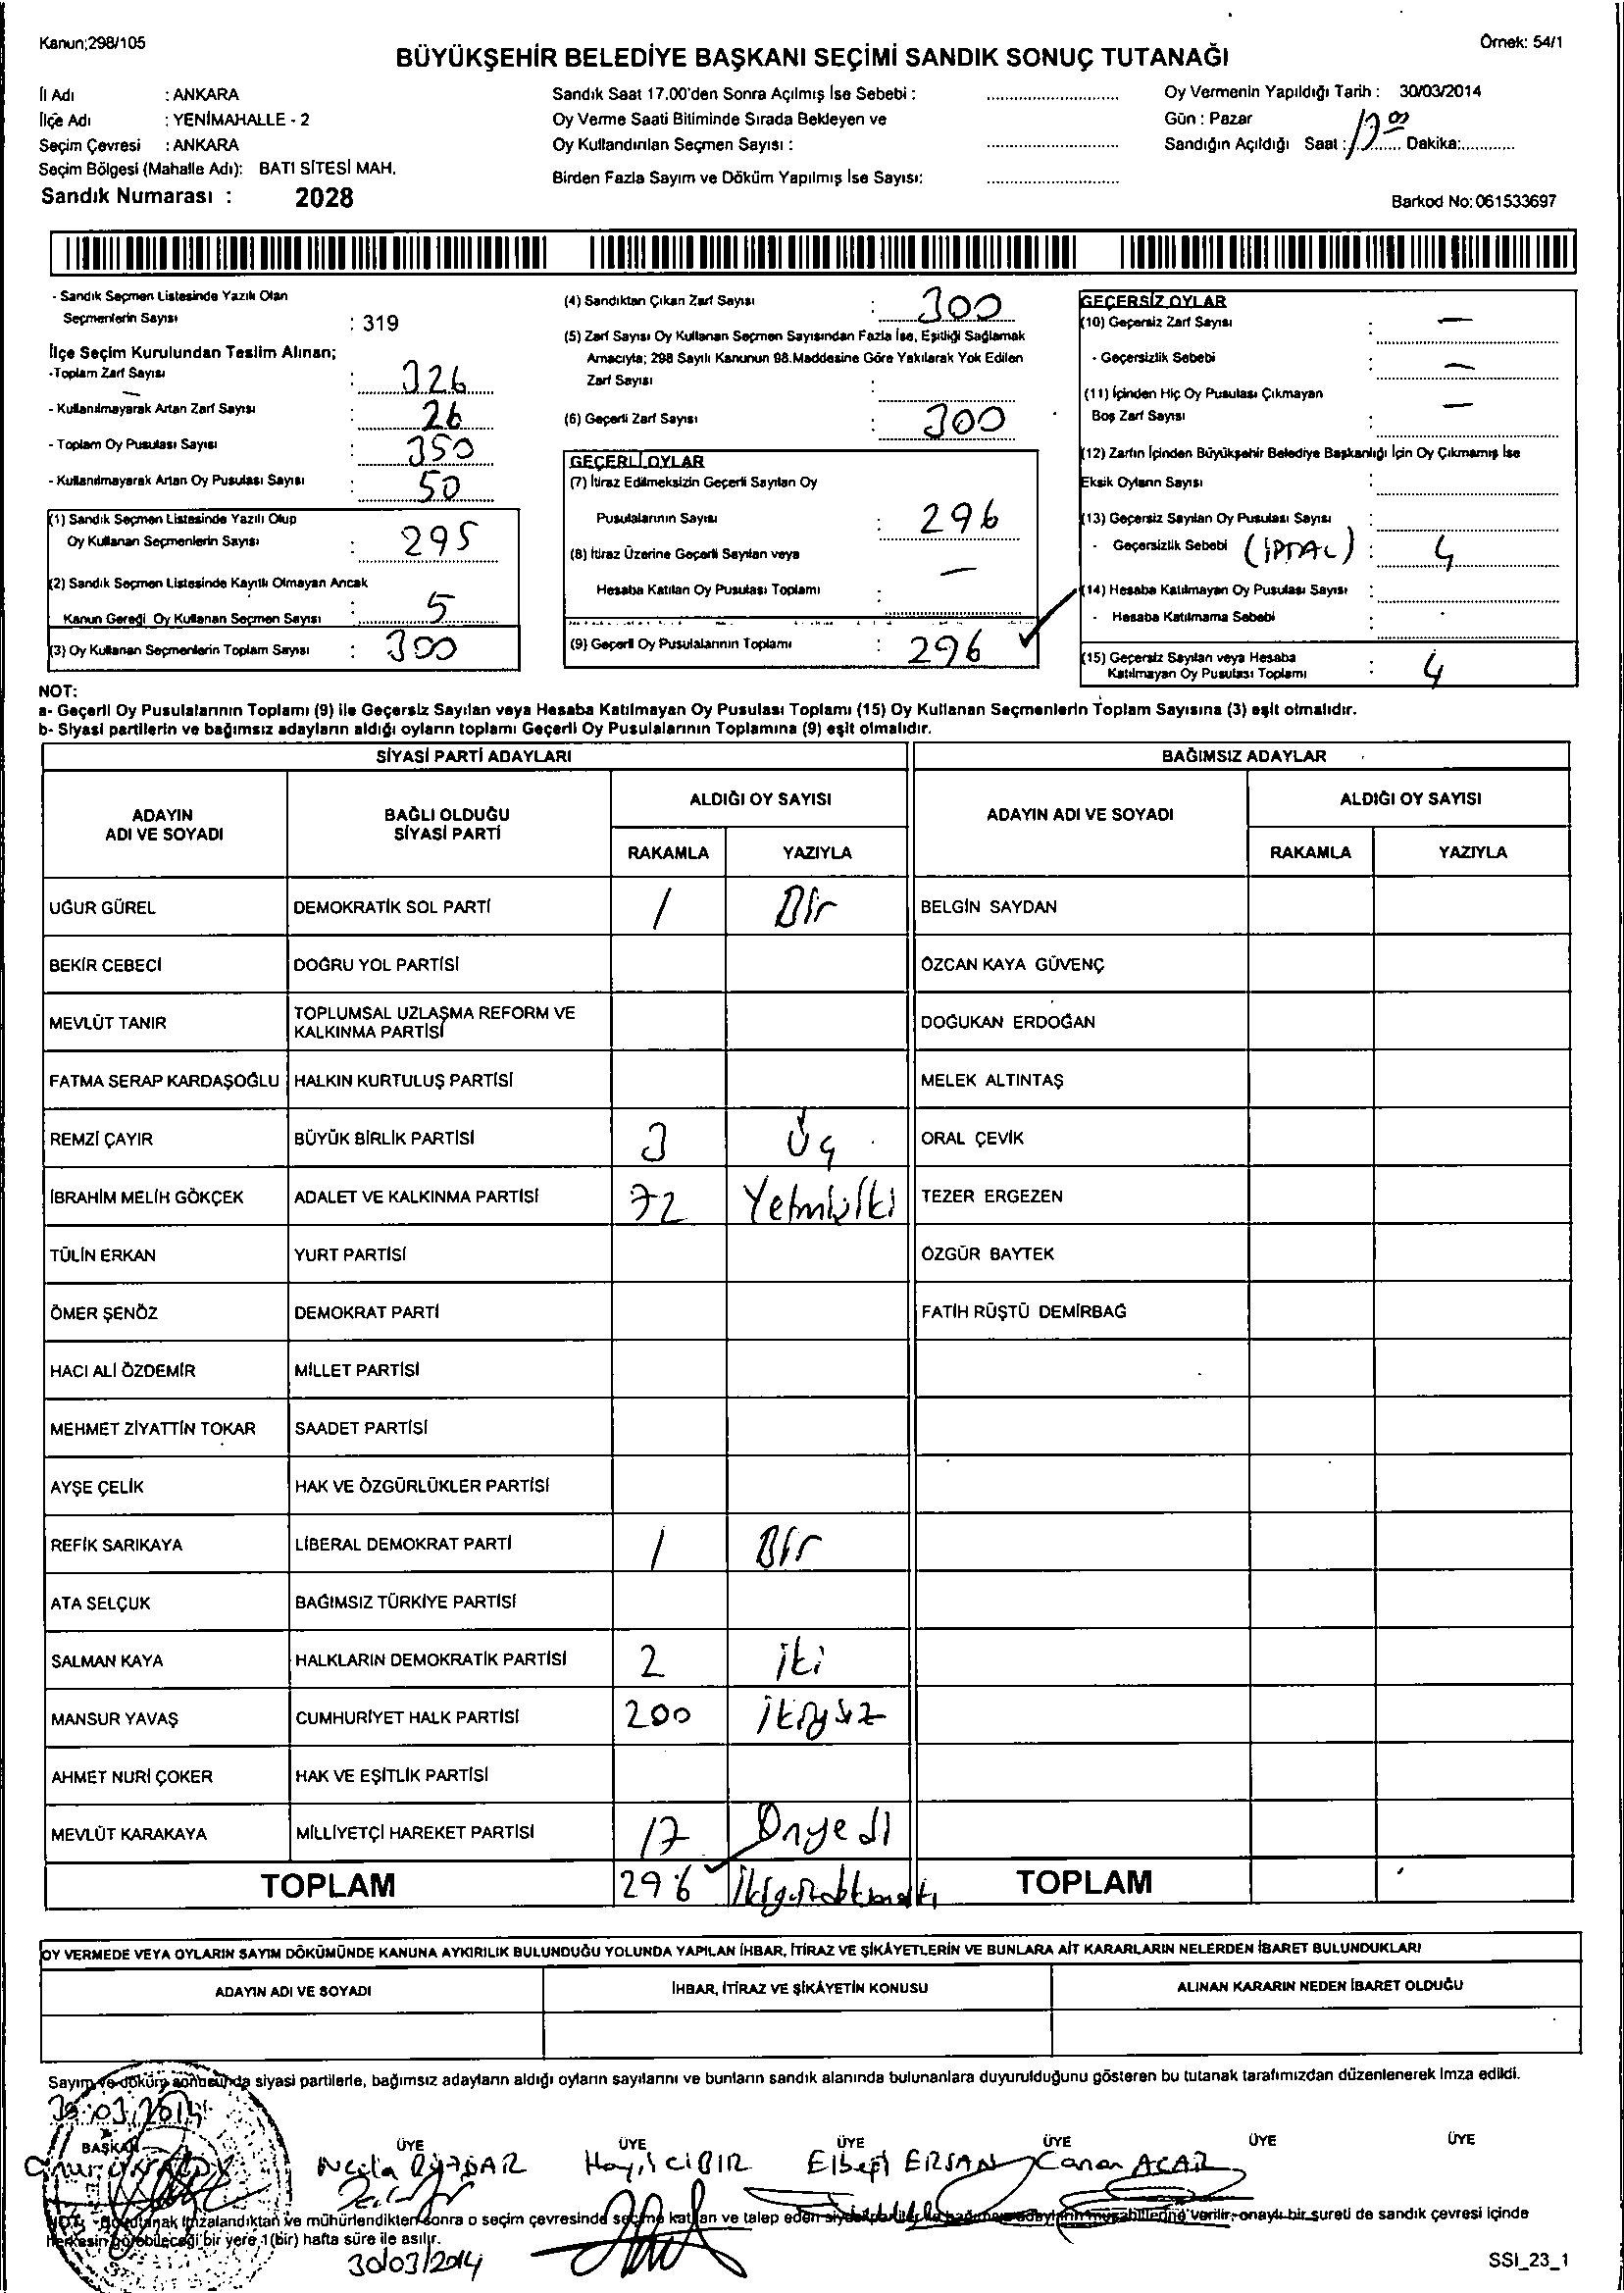 Kanun;298/105
Örnek: 54/1
BÜYÜKŞEHİR BELEDİYE BAŞKANI SEÇİMİ SANDIK SONUÇ TUTANAĞI
İl Adı : ANKARA
İlçe Adı : YENİMAHALLE - 2
Seçim Çevresi : ANKARA
Seçim Bölgesi (Mahalle Adı): BATI SİTESİ MAH.
Sandık Numarası : 2028
Sandık Saat 17.00'den Sonra Açılmış İse Sebebi :
Oy Verme Saati Bitiminde Sırada Bekleyen ve
Oy Kullandırılan Seçmen Sayısı :
Birden Fazla Sayım ve Döküm Yapılmış İse Sayısı:
Oy Vermenin Yapıldığı Tarih : 30/03/2014
Gün : Pazar
Sandığın Açıldığı Saat : 17 00 Dakika:
Barkod No: 061533697
- Sandık Seçmen Listesinde Yazılı Olan
Seçmenlerin Sayısı : 319
İlçe Seçim Kurulundan Teslim Alınan;
-Toplam Zarf Sayısı : 326
- Kullanılmayarak Artan Zarf Sayısı : 26
- Toplam Oy Pusulası Sayısı : 350
- Kullanılmayarak Artan Oy Pusulası Sayısı : 50
(1) Sandık Seçmen Listesinde Yazılı Olup
Oy Kullanan Seçmenlerin Sayısı : 295
(2) Sandık Seçmen Listesinde Kayıtlı Olmayan Ancak
Kanun Gereği Oy Kullanan Seçmen Sayısı : 5
(3) Oy Kullanan Seçmenlerin Toplam Sayısı : 300
(4) Sandıktan Çıkan Zarf Sayısı : 300
(5) Zarf Sayısı Oy Kullanan Seçmen Sayısından Fazla İse, Eşitliği Sağlamak
Amacıyla; 298 Sayılı Kanunun 98.Maddesine Göre Yakılarak Yok Edilen
Zarf Sayısı :
(6) Geçerli Zarf Sayısı : 300
GEÇERLİ OYLAR
(7) İtiraz Edilmeksizin Geçerli Sayılan Oy
Pusulalarının Sayısı : 296
(8) İtiraz Üzerine Geçerli Sayılan veya
Hesaba Katılan Oy Pusulası Toplamı : —
(9) Geçerli Oy Pusulalarının Toplamı : 296
GEÇERSİZ OYLAR
(10) Geçersiz Zarf Sayısı : —
- Geçersizlik Sebebi : —
(11) İçinden Hiç Oy Pusulası Çıkmayan
Boş Zarf Sayısı : —
(12) Zarfın İçinden Büyükşehir Belediye Başkanlığı İçin Oy Çıkmamış İse
Eksik Oyların Sayısı :
(13) Geçersiz Sayılan Oy Pusulası Sayısı :
- Geçersizlik Sebebi (İPTAL) : 4
(14) Hesaba Katılmayan Oy Pusulası Sayısı :
- Hesaba Katılmama Sebebi :
(15) Geçersiz Sayılan veya Hesaba
Katılmayan Oy Pusulası Toplamı : 4
NOT:
a- Geçerli Oy Pusulalarının Toplamı (9) ile Geçersiz Sayılan veya Hesaba Katılmayan Oy Pusulası Toplamı (15) Oy Kullanan Seçmenlerin Toplam Sayısına (3) eşit olmalıdır.
b- Siyasi partilerin ve bağımsız adayların aldığı oyların toplamı Geçerli Oy Pusulalarının Toplamına (9) eşit olmalıdır.
SİYASİ PARTİ ADAYLARI BAĞIMSIZ ADAYLAR
ADAYIN ADI VE SOYADI BAĞLI OLDUĞU SİYASİ PARTİ ALDIĞI OY SAYISI ADAYIN ADI VE SOYADI ALDIĞI OY SAYISI
RAKAMLA YAZIYLA RAKAMLA YAZIYLA
UĞUR GÜREL DEMOKRATİK SOL PARTİ 1 Bir BELGİN SAYDAN
BEKİR CEBECİ DOĞRU YOL PARTİSİ ÖZCAN KAYA GÜVENÇ
MEVLÜT TANIR TOPLUMSAL UZLAŞMA REFORM VE KALKINMA PARTİSİ DOĞUKAN ERDOĞAN
FATMA SERAP KARDAŞOĞLU HALKIN KURTULUŞ PARTİSİ MELEK ALTINTAŞ
REMZİ ÇAYIR BÜYÜK BİRLİK PARTİSİ 3 Üç ORAL ÇEVİK
İBRAHİM MELİH GÖKÇEK ADALET VE KALKINMA PARTİSİ 72 Yetmişiki TEZER ERGEZEN
TÜLİN ERKAN YURT PARTİSİ ÖZGÜR BAYTEK
ÖMER ŞENÖZ DEMOKRAT PARTİ FATİH RÜŞTÜ DEMİRBAĞ
HACI ALİ ÖZDEMİR MİLLET PARTİSİ
MEHMET ZİYATTİN TOKAR SAADET PARTİSİ
AYŞE ÇELİK HAK VE ÖZGÜRLÜKLER PARTİSİ
REFİK SARIKAYA LİBERAL DEMOKRAT PARTİ 1 Bir
ATA SELÇUK BAĞIMSIZ TÜRKİYE PARTİSİ
SALMAN KAYA HALKLARIN DEMOKRATİK PARTİSİ 2 iki
MANSUR YAVAŞ CUMHURİYET HALK PARTİSİ 200 ikiyüz
AHMET NURİ ÇOKER HAK VE EŞİTLİK PARTİSİ
MEVLÜT KARAKAYA MİLLİYETÇİ HAREKET PARTİSİ 17 Onyedi
TOPLAM 296 TOPLAM
OY VERMEDE VEYA OYLARIN SAYIM DÖKÜMÜNDE KANUNA AYKIRILIK BULUNDUĞU YOLUNDA YAPILAN İHBAR, İTİRAZ VE ŞİKÂYETLERİN VE BUNLARA AİT KARARLARIN NELERDEN İBARET BULUNDUKLARI
ADAYIN ADI VE SOYADI İHBAR, İTİRAZ VE ŞİKÂYETİN KONUSU ALINAN KARARIN NEDEN İBARET OLDUĞU
Sayım ve döküm sonucunda siyasi partilerle, bağımsız adayların aldığı oyların sayılarını ve bunların sandık alanında bulunanlara duyurulduğunu gösteren bu tutanak tarafımızdan düzenlenerek imza edildi.
30.03.2014
BAŞKAN ÜYE ÜYE ÜYE ÜYE ÜYE ÜYE
Elbeği ERSAN Canan ACAR
NOT: Bu tutanak imzalandıktan ve mühürlendikten sonra o seçim çevresinde seçime katılan ve talep eden siyasi partiler ile bağımsız adayların müşahitlerine verilir, onaylı bir sureti de sandık çevresi içinde
herkesin görebileceği bir yere 1(bir) hafta süre ile asılır.
30/03/2014
SSI_23_1